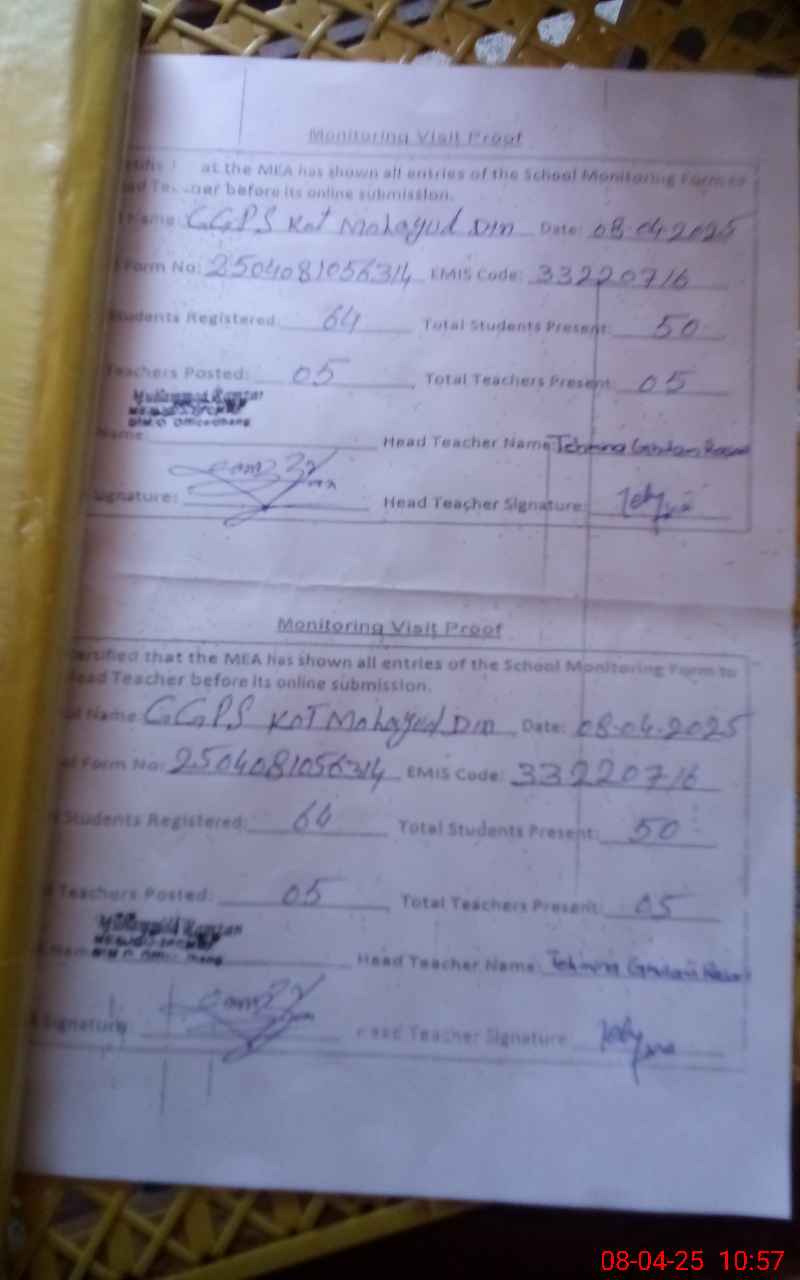 Monitoring Visit Proof
at the MEA has shown all entries of the School Monitoring Form to
before its online submission.
Name: GGPS Kot Mohayud Din Date: 08-04-2025
Form No: 2504081056314 EMIS Code: 33220716
Students Registered: 64 Total Students Present: 50
Teachers Posted: 05 Total Teachers Present: 05
Name: Head Teacher Name: Tehmina Ghulam Rasool
Signature: Head Teacher Signature:
Monitoring Visit Proof
ertified that the MEA has shown all entries of the School Monitoring Form to
Head Teacher before its online submission.
Name: GGPS Kot Mohayud Din Date: 08-04-2025
Form No: 2504081056314 EMIS Code: 33220716
Students Registered: 64 Total Students Present: 50
Teachers Posted: 05 Total Teachers Present: 05
Head Teacher Name: Tehmina Ghulam Rasool
Signature Teacher Signature:
08-04-25 10:57